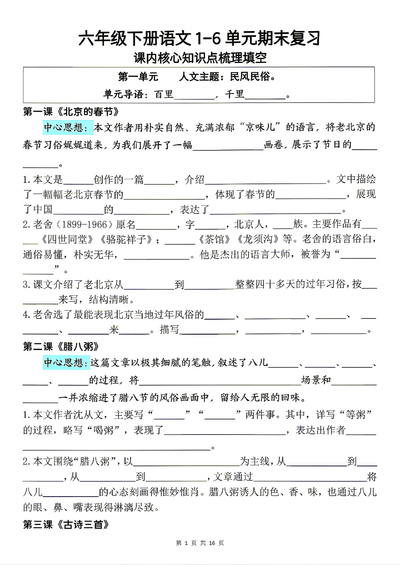 六年级下册语文1-6单元期末复习
课内核心知识点梳理填空
第一单元 人文主题：民风民俗。
单元导语：百里________，千里________。
第一课《北京的春节》
中心思想：本文作者用朴实自然、充满浓郁“京味儿”的语言，将老北京的
春节习俗娓娓道来，为我们展开了一幅__________画卷，展示了节日的_____
、_______。
1.本文是______创作的一篇______，介绍______________________。文中描绘
了一幅幅老北京春节的__________，体现了春节的__________，展现
了中国__________的__________，表达了__________________。
2.老舍（1899-1966）原名______，字______，北京人，___族。主要作品有___
___《四世同堂》《骆驼祥子》；______《茶馆》《龙须沟》等。老舍的语言俗白，
通俗易懂，朴实无华，______________。他是杰出的语言大师，被誉为“______
______”。
3.课文介绍了老北京从__________到__________整整四十多天的过年习俗，按___
______来写，结构清晰。
4.老舍选了最能表现北京当地过年风俗的________、________、________、____
____、________来________。描写__________，__________，__________。
第二课《腊八粥》
中心思想：这篇文章以极其细腻的笔触，叙述了八儿______、______、______、
______、______的过程，将__________________________场景和__________
______一并浓缩进了腊八节的风俗画面中，留给人无限的回味。
1.本文作者沈从文，主要写“______”“________”两件事。其中，详写“等粥”
的过程，略写“喝粥”，表现了__________________，表达出作者__________
__________。
2.本文围绕“腊八粥”，以________________为主线，从________到________
________，从__________到__________，文章通过________________________将
八儿__________的心态刻画得惟妙惟肖。腊八粥诱人的色、香、味，也通过八儿
的眼、鼻、嘴表现得淋漓尽致。
第三课《古诗三首》
第 1 页 共 16 页